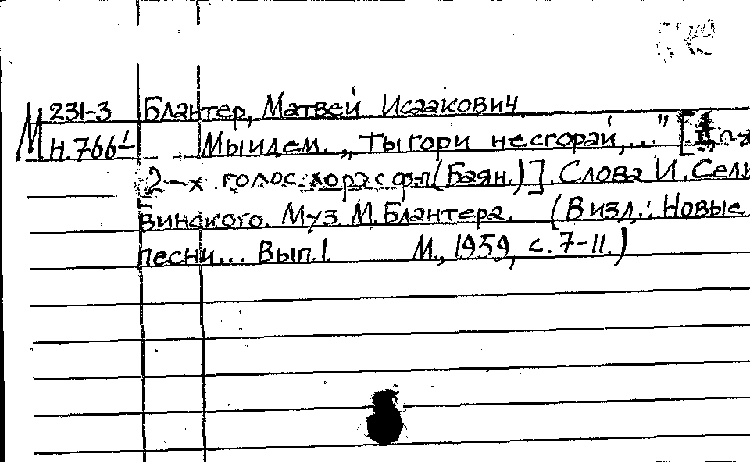 М 231-3 Блантер, Матвей Исаакович
Н.766 Мы идем. „Ты гори не сгорай,..." [Для
2-х голос. хора с фп (Баян.)]. Слова И. Сель
винского. Муз. М. Блантера. (В изд.: Новые
песни... Вып.1 М., 1959, с. 7-11.)